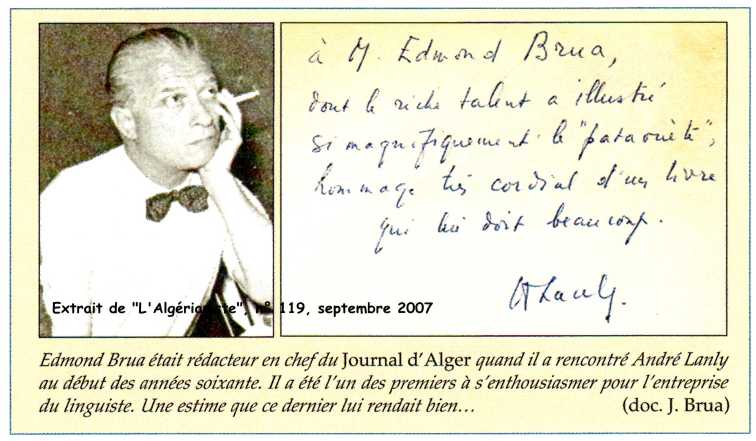 à M. Edmond Brua,
dont le riche talent a illustré
si magnifiquement le "pataouète",
hommage très cordial d'un livre
qui lui doit beaucoup.
A Lanly.
Extrait de "L'Algérianiste", n° 119, septembre 2007
Edmond Brua était rédacteur en chef du Journal d'Alger quand il a rencontré André Lanly
au début des années soixante. Il a été l'un des premiers à s'enthousiasmer pour l'entreprise
du linguiste. Une estime que ce dernier lui rendait bien… (doc. J. Brua)